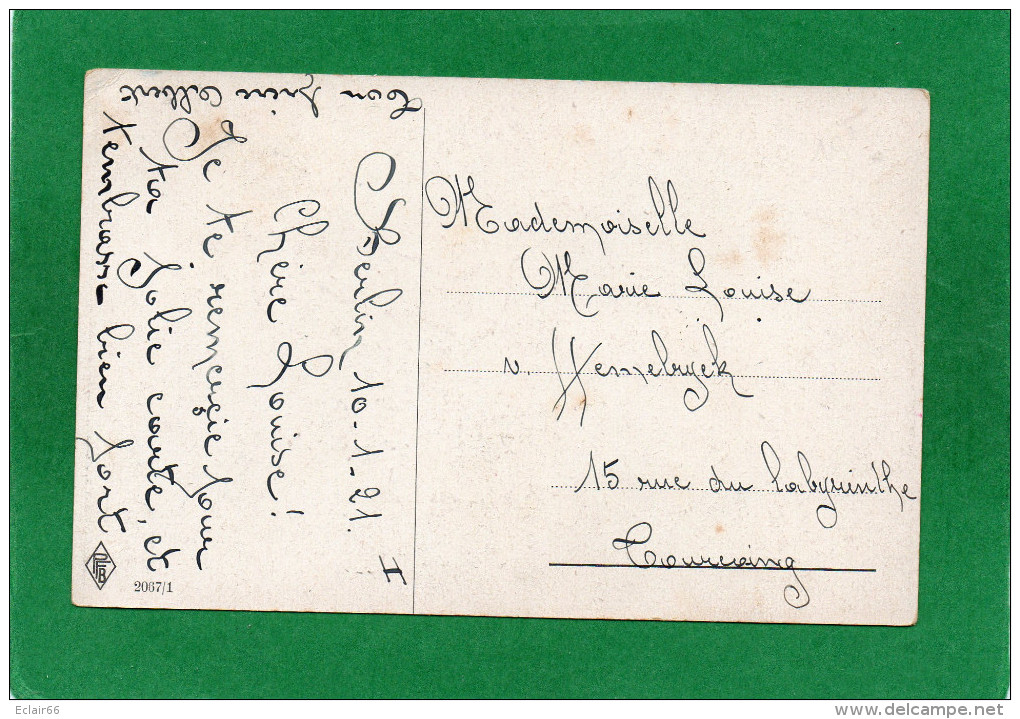 Berlin, 10.1.21.
I
Chère Louise!
Je te remerçie pour
ta jolie carte, et
t'embrasse bien fort
ton frère Albert
Mademoiselle
Marie Louise
v. Hemelryck
15 rue du Labyrinthe
Tourcoing
PFB
2067/1
Eclair66
delcampe.net